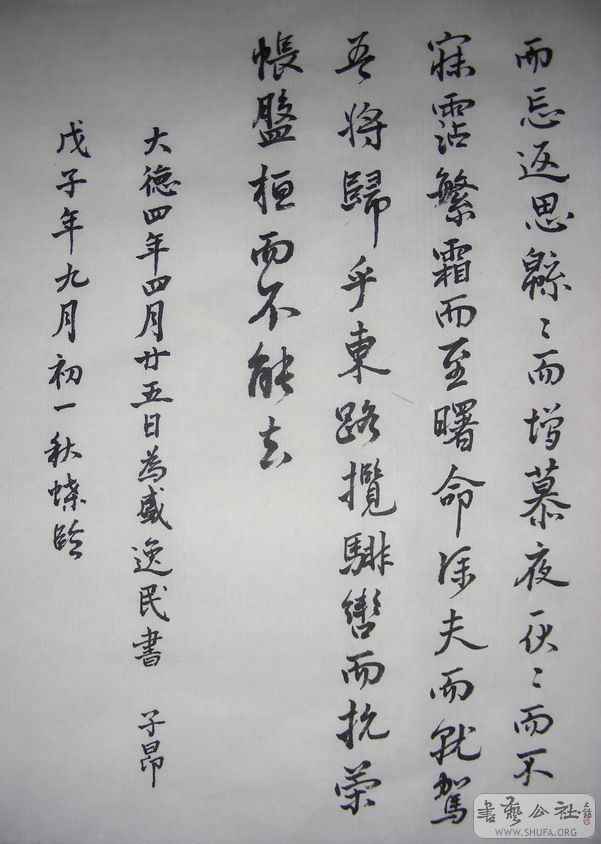 而忘返思緜〻而增慕夜耿〻而不
寐霑繁霜而至曙命僕夫而就駕
吾將歸乎東路攬騑轡而抗策
悵盤桓而不能去
大德四年四月廿五日為盛逸民書 子昂
戊子年九月初一秋蝶臨
書藝公社
WWW.SHUFA.ORG